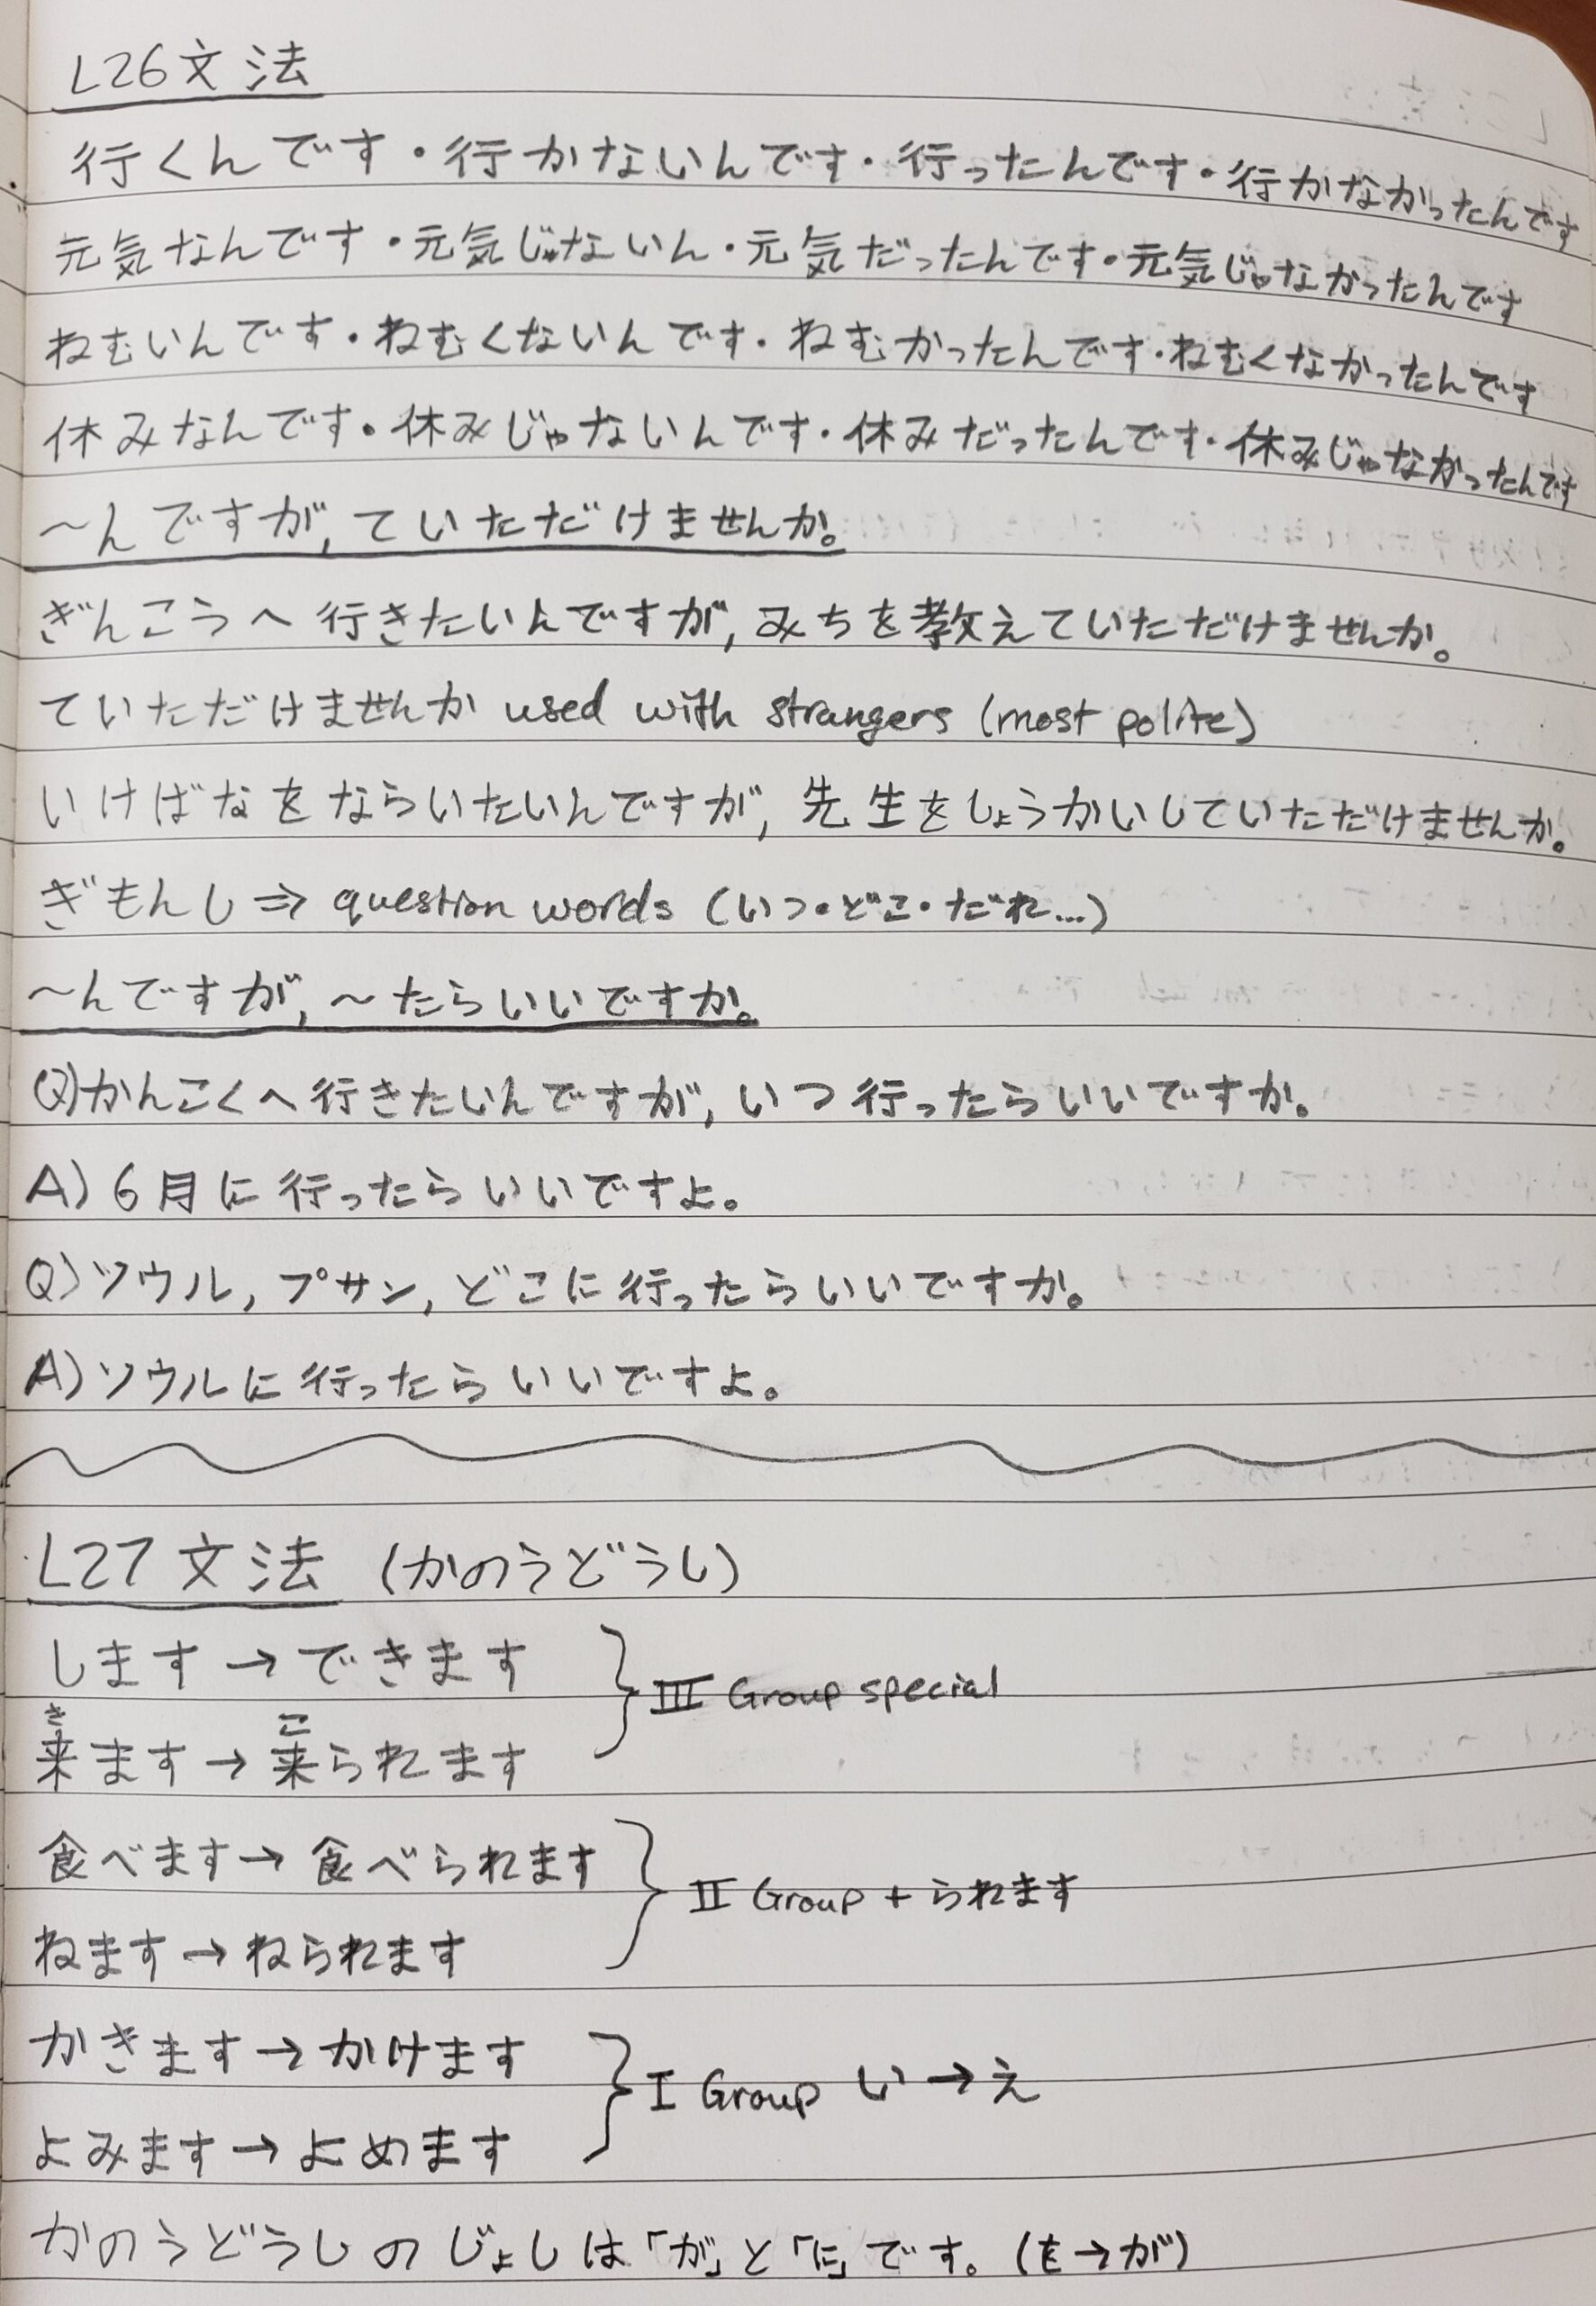 L26文法
行くんです・行かないんです・行ったんです・行かなかったんです
元気なんです・元気じゃないん・元気だったんです・元気じゃなかったんです
ねむいんです・ねむくないんです・ねむかったんです・ねむくなかったんです
休みなんです・休みじゃないんです・休みだったんです・休みじゃなかったんです
〜んですが, ていただけませんか。
ぎんこうへ行きたいんですが, みちを教えていただけませんか。
ていただけませんか used with strangers (most polite)
いけばなをならいたいんですが, 先生をしょうかいしていただけませんか。
ぎもんし ⇒ question words (いつ・どこ・だれ...)
〜んですが, 〜たらいいですか。
Q)かんこくへ行きたいんですが, いつ行ったらいいですか。
A) 6月に行ったらいいですよ。
Q)ソウル, プサン, どこに行ったらいいですか。
A)ソウルに行ったらいいですよ。
L27文法 (かのうどうし)
します → できます
III Group special
き こ
来ます → 来られます
食べます → 食べられます
II Group + られます
ねます → ねられます
かきます → かけます
I Group い → え
よみます → よめます
かのうどうしのじょしは「が」と「に」です。(を → が)